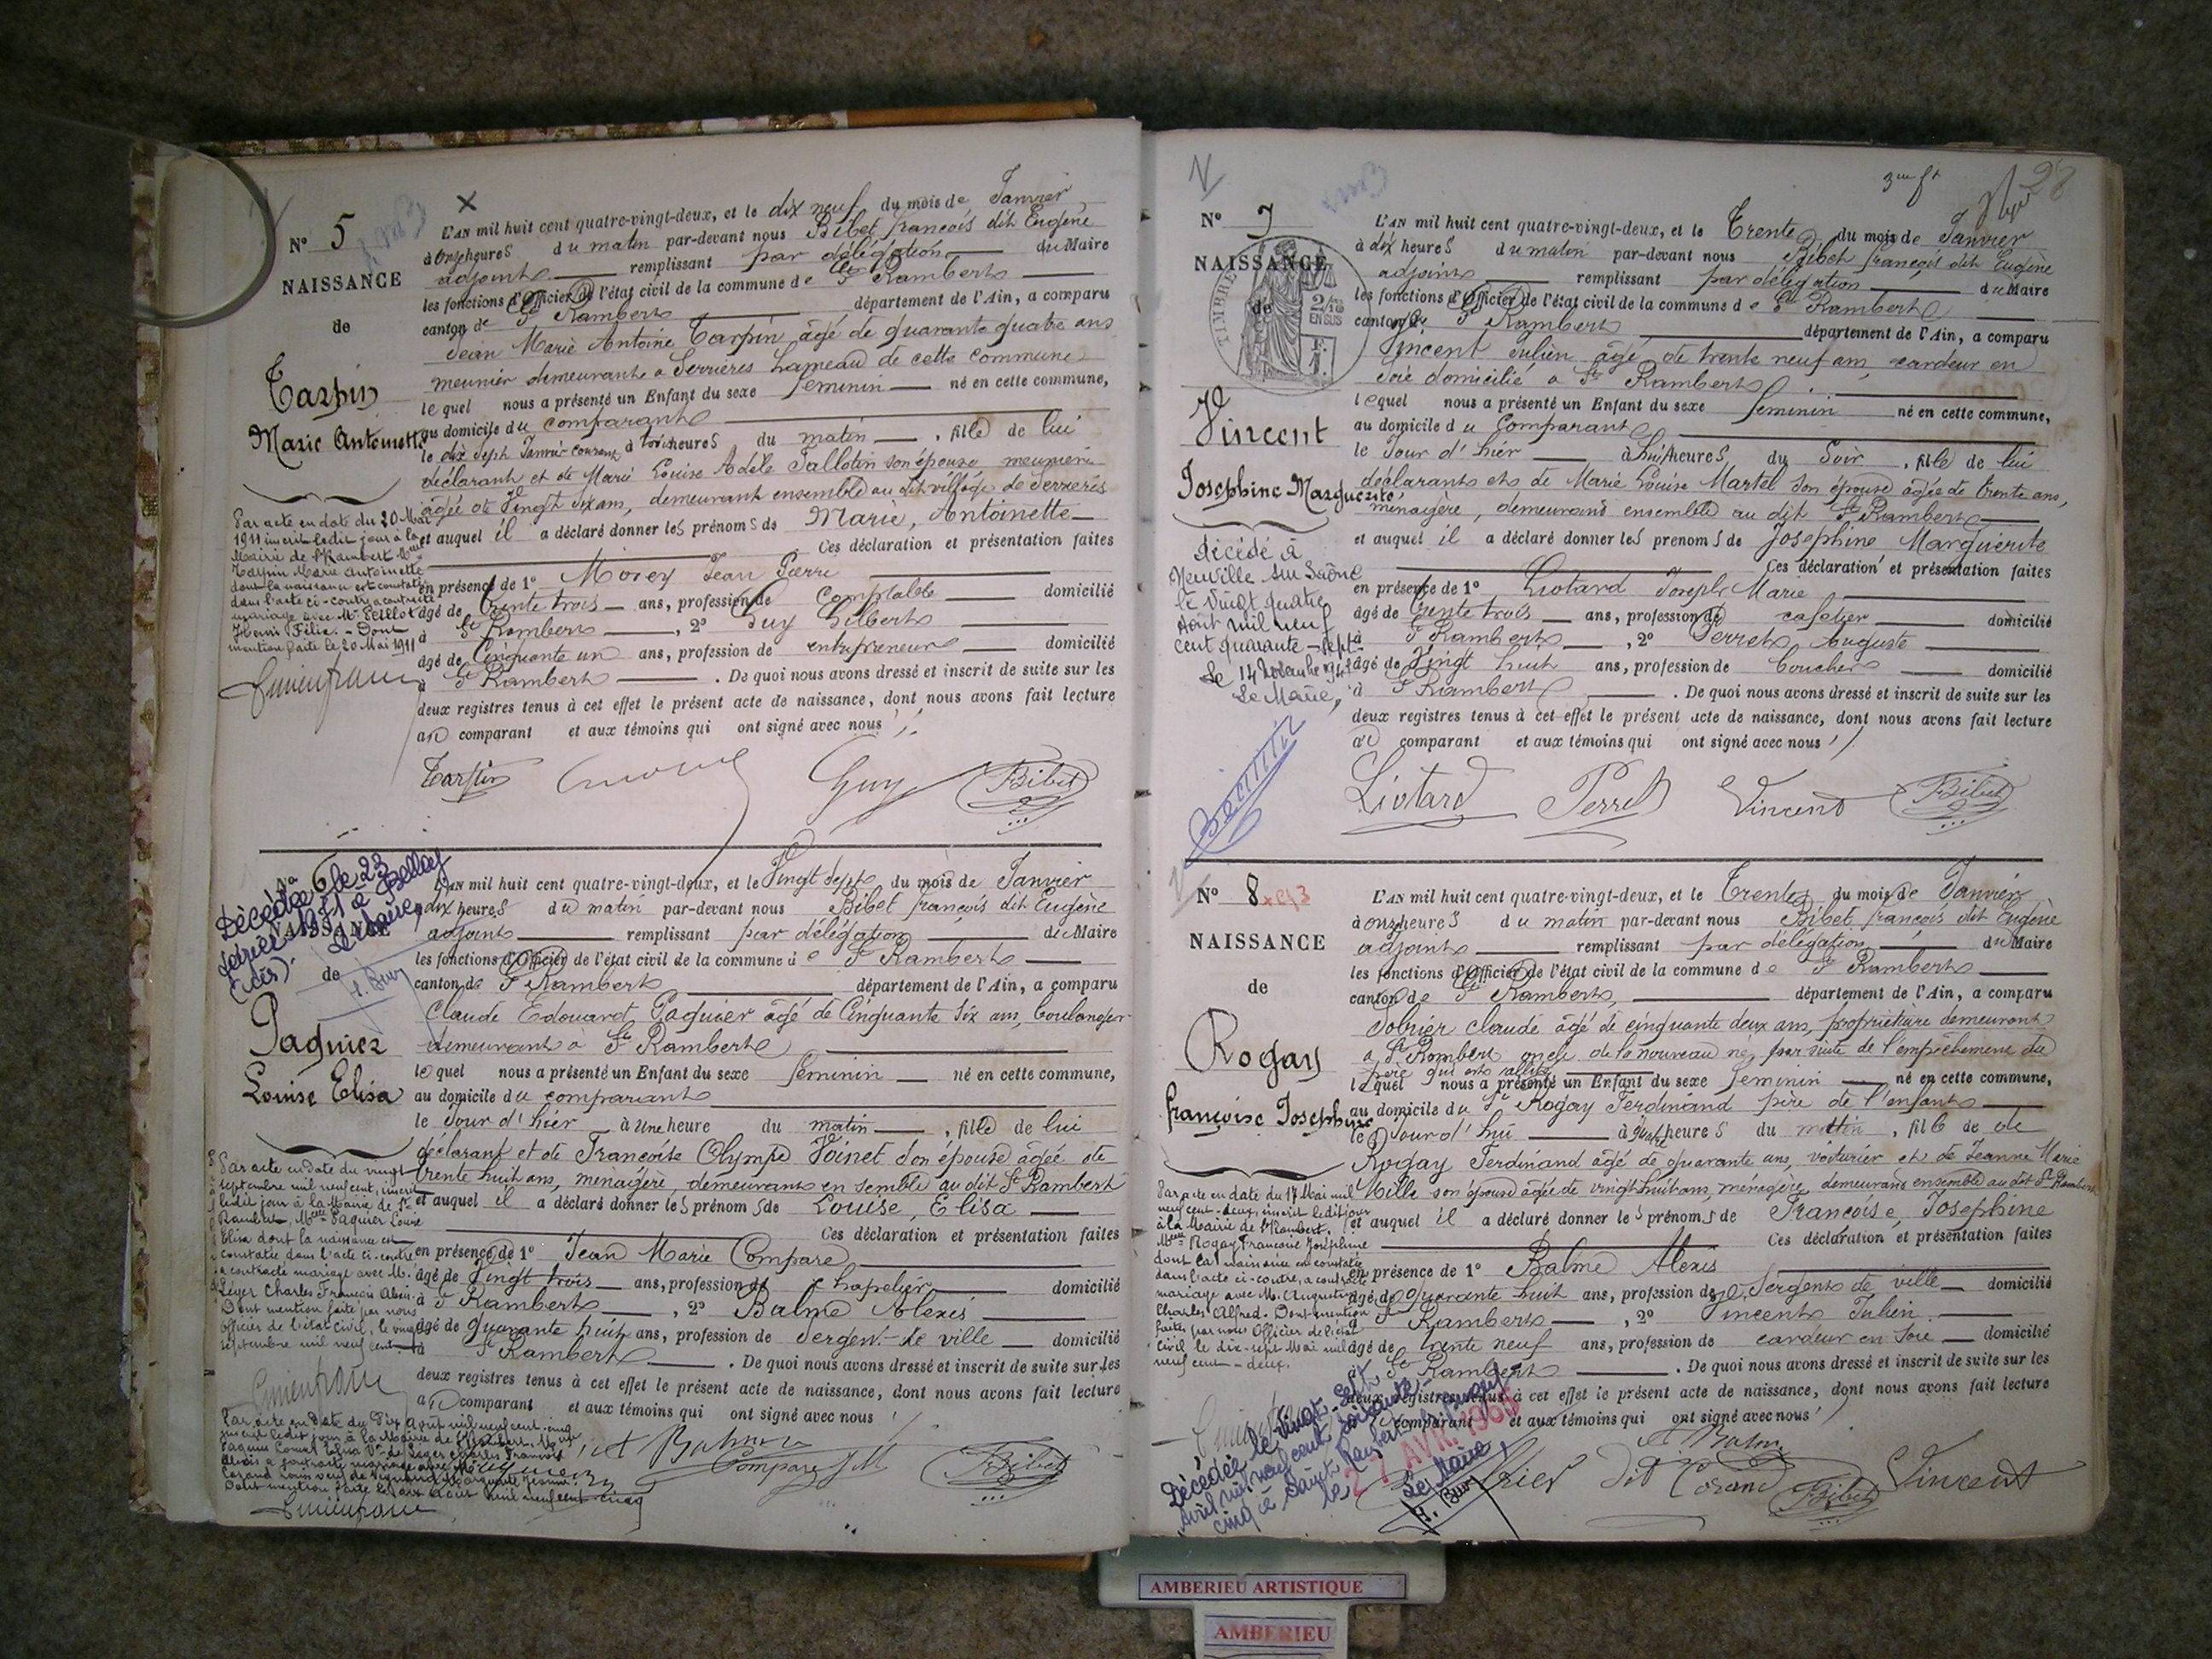 N° 5
NAISSANCE
de
Tarpin
Marie Antoinette
L'AN mil huit cent quatre-vingt-deux, et le dix neuf du mois de Janvier
à onze heures du matin par-devant nous Bibet françois dit Eugène
adjoint remplissant par délégation du Maire
les fonctions d'Officier de l'état civil de la commune de St Rambert
canton de St Rambert département de l'Ain, a comparu
Jean Marie Antoine Tarpin âgé de quarante quatre ans
meunier demeurant à Serrières hameau de cette commune
lequel nous a présenté un Enfant du sexe féminin né en cette commune,
au domicile du comparant
le dix sept Janvier courant à trois heures du matin, fille de lui
déclarant et de Marie Louise Adèle Tallotin son épouse meunière
âgée de Vingt six ans, demeurant ensemble au dit village de Serrières
et auquel il a déclaré donner les prénoms de Marie, Antoinette
Ces déclaration et présentation faites
en présence de 1° Morey Jean Pierre
âgé de trente trois ans, profession de comptable domicilié
à St Rambert, 2° Guy Gilbert
âgé de Cinquante un ans, profession de entrepreneur domicilié
à St Rambert. De quoi nous avons dressé et inscrit de suite sur les
deux registres tenus à cet effet le présent acte de naissance, dont nous avons fait lecture
au comparant et aux témoins qui ont signé avec nous
Tarpin Guy Bibet
Par acte en date du 20 Mai
1911 inscrit ledit jour à la
Mairie de St Rambert Melle
Tarpin Marie Antoinette
dont la naissance est constatée
dans l'acte ci-contre a contracté
mariage avec Mr
Henri Félix. - Dont
mention faite le 20 Mai 1911
N° 6
NAISSANCE
de
Paquier
Louise Elisa
Décédée le 23
février 1971 à Belley
(Ain). Le Maire,
L'AN mil huit cent quatre-vingt-deux, et le Vingt sept du mois de Janvier
à dix heures du matin par-devant nous Bibet françois dit Eugène
adjoint remplissant par délégation du Maire
les fonctions d'Officier de l'état civil de la commune de St Rambert
canton de St Rambert département de l'Ain, a comparu
Claude Edouard Paquier âgé de Cinquante six ans, boulanger
demeurant à St Rambert
lequel nous a présenté un Enfant du sexe féminin né en cette commune,
au domicile du comparant
le Jour d'hier à Une heure du matin, fille de lui
déclarant et de Françoise Olympe Voinet son épouse âgée de
trente huit ans, ménagère, demeurant en semble au dit St Rambert
et auquel il a déclaré donner les prénoms de Louise, Elisa
Ces déclaration et présentation faites
en présence de 1° Jean Marie Compare
âgé de Vingt trois ans, profession de chapelier domicilié
à St Rambert, 2° Balme Alexis
âgé de quarante huit ans, profession de Sergent de ville domicilié
à St Rambert. De quoi nous avons dressé et inscrit de suite sur les
deux registres tenus à cet effet le présent acte de naissance, dont nous avons fait lecture
au comparant et aux témoins qui ont signé avec nous
A Balme Compare JM Bibet
Par acte en date du vingt
septembre mil neuf cent, inscrit
ledit jour à la Mairie de St
Rambert, Melle Paquier Louise
Elisa dont la naissance est
constatée dans l'acte ci-contre
a contracté mariage avec M.
Léger Charles François Alexis.
Dont mention faite par nous
Officier de l'état civil, le vingt
septembre mil neuf cent.
Par acte en date du dix août mil neuf cent cinq
inscrit ledit jour à la Mairie de St Rambert, Mme
Paquier Louise Elisa Vve de Léger Charles François
Alexis a contracté mariage avec M.
Dont mention faite le dix août mil neuf cent cinq
N° 7
NAISSANCE
de
Vincent
Josephine Marguerite
TIMBRE
2/10
EN SUS
L'AN mil huit cent quatre-vingt-deux, et le Trente du mois de Janvier
à dix heures du matin par-devant nous Bibet françois dit Eugène
adjoint remplissant par délégation du Maire
les fonctions d'Officier de l'état civil de la commune de St Rambert
canton de St Rambert département de l'Ain, a comparu
Vincent Julien âgé de trente neuf ans, cardeur en
soie domicilié à St Rambert
lequel nous a présenté un Enfant du sexe féminin né en cette commune,
au domicile du Comparant
le Jour d'hier à huit heures du Soir, fille de lui
déclarant et de Marie Louise Martel son épouse âgée de trente ans,
ménagère, demeurant ensemble au dit St Rambert
et auquel il a déclaré donner les prénoms de Josephine Marguerite
Ces déclaration et présentation faites
en présence de 1° Liotard Joseph Marie
âgé de trente trois ans, profession de cafetier domicilié
à St Rambert, 2° Perret Auguste
âgé de Vingt huit ans, profession de boucher domicilié
à St Rambert. De quoi nous avons dressé et inscrit de suite sur les
deux registres tenus à cet effet le présent acte de naissance, dont nous avons fait lecture
au comparant et aux témoins qui ont signé avec nous
Liotard Perret Vincent Bibet
décédé à
Neuville sur Saône
le Vingt quatre
Août mil neuf
cent quarante-sept
Le 14 Novembre 1947
Le Maire,
N° 8
NAISSANCE
de
Rogay
françoise Josephine
L'AN mil huit cent quatre-vingt-deux, et le Trente du mois de Janvier
à onze heures du matin par-devant nous Bibet françois dit Eugène
adjoint remplissant par délégation du Maire
les fonctions d'Officier de l'état civil de la commune de St Rambert
canton de St Rambert, département de l'Ain, a comparu
Sobrier claude âgé de cinquante deux ans, propriétaire demeurant
à St Rambert oncle de la nouveau né, par suite de l'empêchement du
père qui est alité
lequel nous a présenté un Enfant du sexe féminin né en cette commune,
au domicile du Sr Rogay Ferdinand père de l'enfant
le Jour d'hui à quatre heures du matin, fille de de
Rogay Ferdinand âgé de quarante ans, voiturier et de Jeanne Marie
Mille son épouse âgée de vingt huit ans, ménagère, demeurant ensemble au dit St Rambert
et auquel il a déclaré donner les prénoms de Françoise, Josephine
Ces déclaration et présentation faites
en présence de 1° Balme Alexis
âgé de quarante huit ans, profession de Sergent de ville domicilié
à St Rambert, 2° Vincent Julien
âgé de trente neuf ans, profession de cardeur en soie domicilié
à St Rambert. De quoi nous avons dressé et inscrit de suite sur les
deux registres tenus à cet effet le présent acte de naissance, dont nous avons fait lecture
au comparant et aux témoins qui ont signé avec nous
A Balme Bibet Vincent
Par acte en date du 17 Mai mil
neuf cent-deux, inscrit ledit jour
à la Mairie de St Rambert,
Melle Rogay Françoise Joséphine
dont la naissance est constatée
dans l'acte ci-contre, a contracté
mariage avec M.
Charles Alfred. Dont mention
faite par nous Officier de l'état
civil le dix-sept Mai mil
neuf cent-deux.
Décédée le vingt-sept
Avril mil neuf cent soixante
cinq à Saint Rambert en Bugey
le 27 AVR. 1965
Le Maire,
AMBERIEU ARTISTIQUE
AMBERIEU